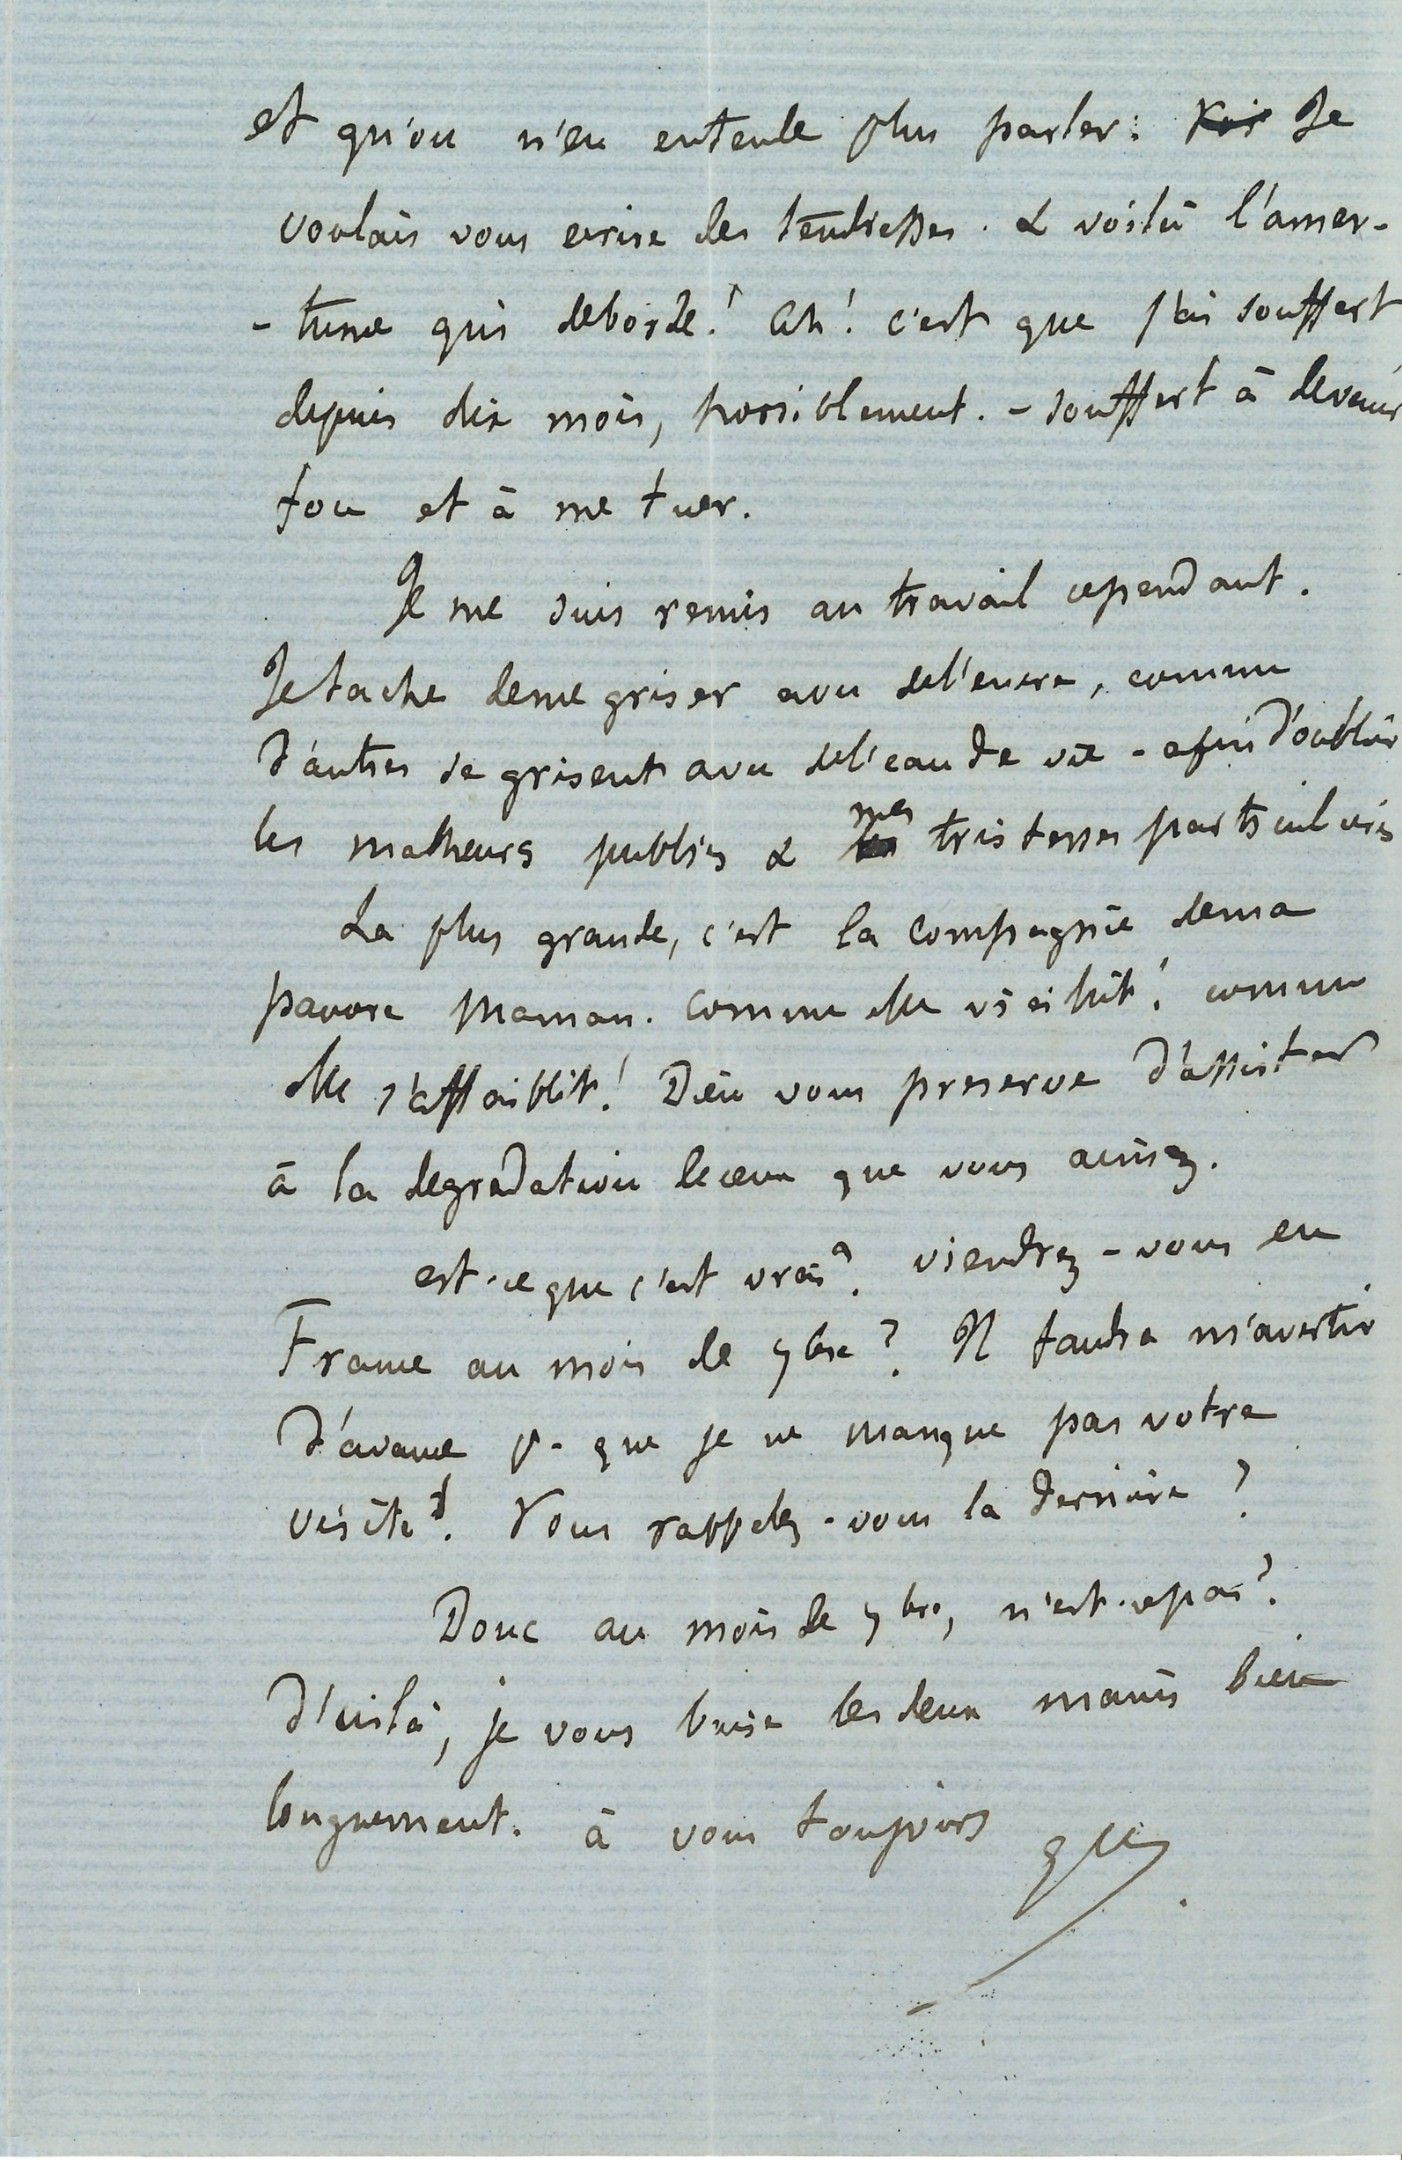 et qu'on n'en entende plus parler. Je
voulais vous ecrire des tendresses. & voilà l'amer-
-tume qui deborde! Ah! c'est que j'ai souffert
depuis dix mois, horriblement. – souffert à devenir
fou et à me tuer.
Je me suis remis au travail cependant.
Je tache de me griser avec de l'encre, comme
d'autres se grisent avec de l'eau de vie - afin d'oublier
les malheurs publics & mes tristesses particulières
La plus grande, c'est la compagnie de ma
pauvre Maman. Comme elle vieillit! comme
elle s'affaiblit! Dieu vous preserve d'assister
à la degradation de ceux que vous aimez.
est-ce que c'est vrai? viendrez-vous en
France au mois de 7bre? Il faudra m'avertir
d'avance p. que je ne manque pas votre
visite. Vous rappelez-vous la dernière?
Donc au mois de 7bre, n'est-ce pas?
D'ici là, je vous baise les deux mains bien
longuement. à vous toujours